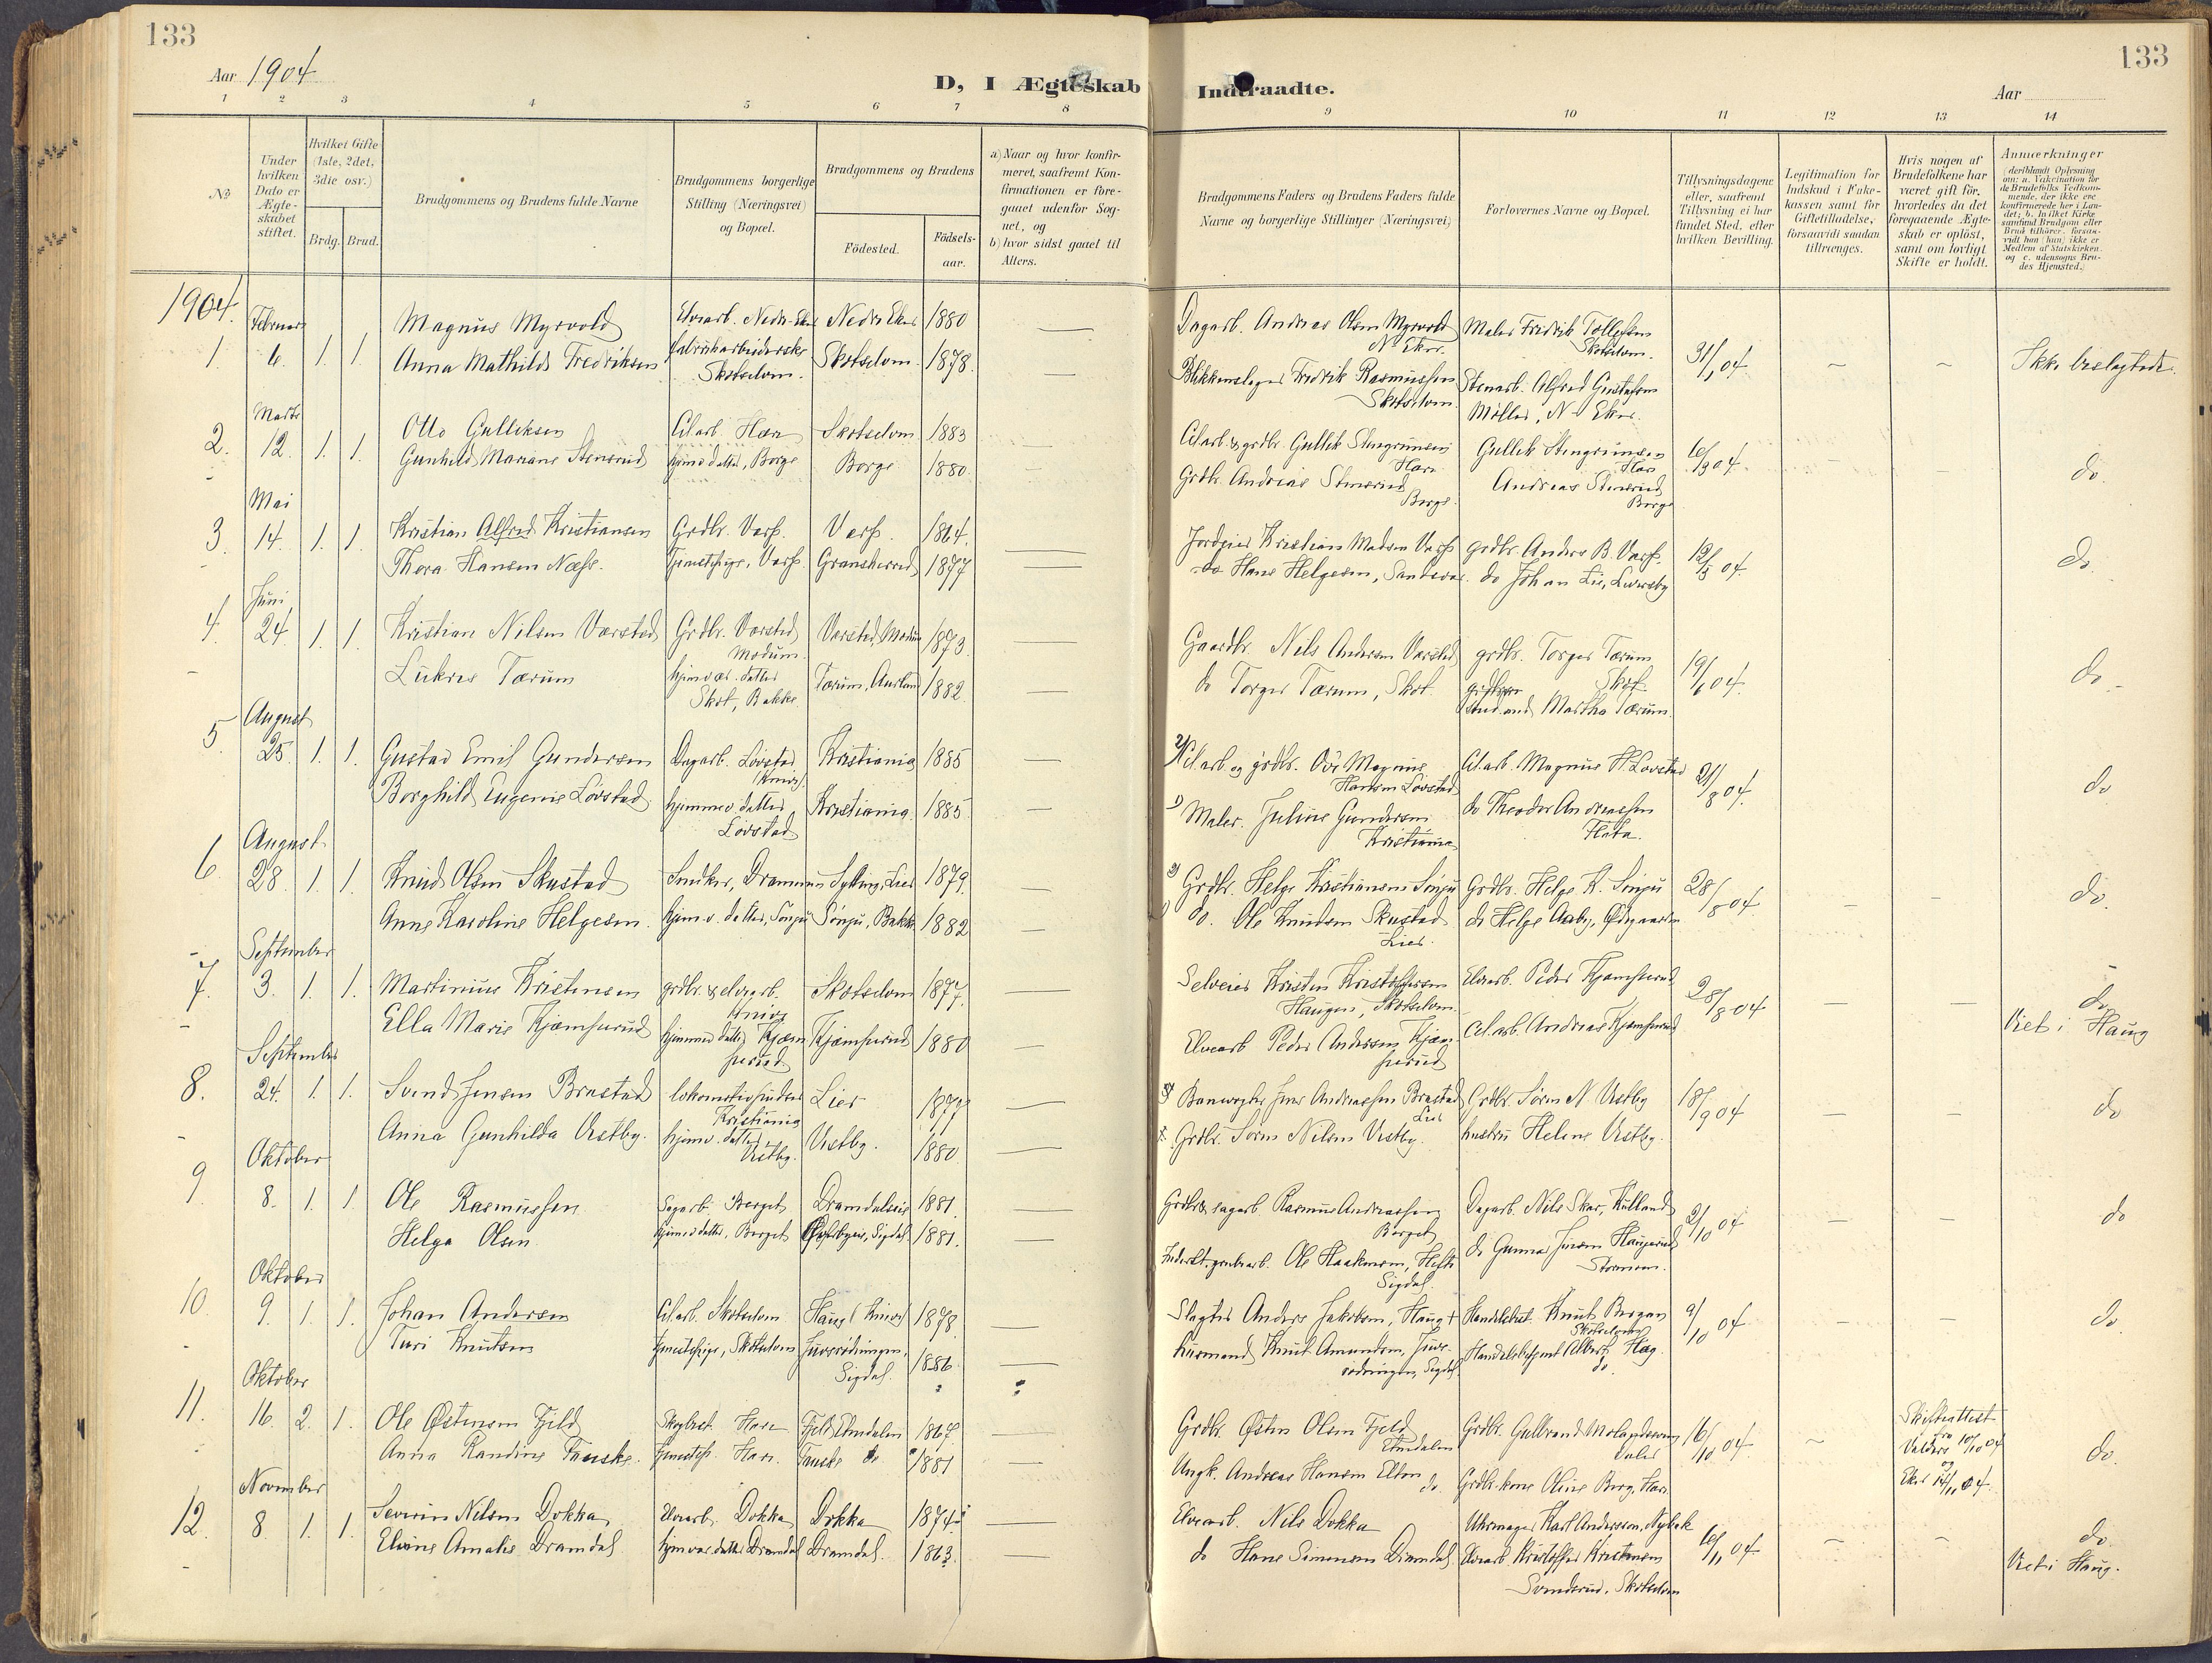 133
133
Aar 1904
D, I Ægteskab Indtraadte.
Aar
1 2 3 4 5 6 7 8 9 10 11 12 13 14
№
Under hvilken Dato er Ægteskabet stiftet.
Hvilket Gifte (1ste, 2det, 3die osv.)
Brdg. Brud.
Brudgommens og Brudens fulde Navne
Brudgommens borgerlige Stilling (Næringsvei) og Bopæl.
Brudgommens og Brudens
Födested.
Födselsaar.
a) Naar og hvor konfirmeret, saafremt Konfirmationen er foregaaet udenfor Sognet, og
b) hvor sidst gaaet til Alters.
Brudgommens Faders og Brudens Faders fulde Navne og borgerlige Stillinger (Næringsvei)
Forlovernes Navne og Bopæl.
Tillysningsdagene eller, saafremt Tillysning ei har fundet Sted, efter hvilken Bevilling.
Legitimation for Indskud i Enkekassen samt for Giftetilladelse, forsaavidt saadan tiltrænges.
Hvis nogen af Brudefolkene har været gift för, hvorledes da det foregaaende Ægteskab er oplöst, samt om lovligt Skifte er holdt.
Anmærkninger
1904.
Februar
1. 6. 1. 1. Magnus Myrvold Elvearb. Nedre Eker Nedre Eker 1880 Dagarb. Andreas Olsen Myrvold N. Eker. Maler Fredrik Tollefsen Skotselven. 31/1 04. Ikke beslægtede.
Anna Mathilde Fredriksen fabrikarbeiderske Skotselven. Skotselven. 1878. Blikkenslager Fredrik Rasmussen Skotselven. Stenarb. Alfred Gustafsen Møller, N. Eker.
Marts
2. 12. 1. 1. Otto Gulliksen Cel.arb. Hære Skotselven 1883 Cel.arb. & grdbr. Gullik Stengrimsen Hære Gullik Stengrimsen Hære 6/3 04. do.
Gunhild Mariane Stenerud hjemv. datter, Borge Borge 1880. Grdbr. Andreas Stenerud Borge. Andreas Stenerud Borge
Mai
3. 14. 1. 1. Kristian Alfred Kristiansen Grdbr. Varp. Varp. 1864. Jordeier Kristian Madsen Varp grdbr. Anders B. Varp. 12/5 04. do.
Thora Hansen Næss. Tjenestepige, Varp. Gransherred 1877 do Hans Helgesen, do Johan Lie,
Juni
4. 24. 1. 1. Kristian Nilsen Varstad Grdbr. Varstad Modum. Varstad, Modum 1873. Gaardbr. Nils Andersen Varstad grdbr. Torger Tærum Skot. 19/6 04. do
Lukris Tærum hjemvær. datter Skot, Bakke. Tærum, Aurland 1882 do Torger Tærum, Skot. Martha Tærum.
August
5. 25. 1. 1. Gustav Emil Gundersen Dagarb. Lövstad Kristiania 1885 2) Cel.arb. og grdbr. Ove Magnus Hansen Lövstad Cel.arb. Magnus H. Lovstad 21/8 04. do
Borghild Eugenie Lövstad hjemmev. datter Lövstad Kristiania. 1885 1) Maler. Julius Gundersen Kristiania do Theodor Andreassen Flata.
August
6. 28. 1. 1. Knud Olsen Skustad Snedker, Drammen Sylling, Lier 1879. 2) Grdbr. Helge Kristiansen Sönju Grdbr. Helge K. Sönju 28/8 04. do.
Anne Karoline Helgesen. hjemv. datter, Sönju Sönju, Bakke 1882 1) do. Ole Knudsen Skustad Lier. do Helge Aaby,
September
7. 3. 1. 1. Martinius Kristensen grdbr. & elvearb. Skotselven 1877. Selveier Kristen Kristoffersen Haugen, Skotselven. Elvearb. Peder Kjæmperud 28/8 04 do
Ella Marie Kjæmperud hjemmev. datter Kjæmperud Kjæmperud 1880 Elvearb Peder Andersen Kjæmperud Cel.arb. Andreas Kjæmperud Viet i Haug
September
8. 24. 1. 1. Svend Jensen Brastad lokomotivpudser Kristiania Lier 1877 Banevogter Jens Andreassen Brastad Lier Grdbr. Sören N. Vestby 18/9 04 do
Anna Gunhilda Vestby. hjemv. datter Vestby. Vestby. 1880 Grdbr. Sören Nilsen Vestby. hustru Helene Vestby.
Oktober
9. 8. 1. 1. Ole Rasmussen Sagarb. Berget Dramdalseie 1881. Grdbr. & sagarb. Rasmus Andreassen Berget Dagarb. Nils Skar, Kulland 2/10 04 do
Helga Olsen hjemv. datter, Berget Sigdal 1881. Ole Haakensen, Sigdal. do Gunnar Jensen Haugerud
Oktober
10. 9. 1. 1. Johan Andersen Cel.arb. Skotselven Haug 1878. Slagter Anders Jakobsen, Haug Handelsbest. Knut Bergan Skotselven 9/10 04 do
Turi Knutsen tjenestepige, Skotselven Juvsrödningen, Sigdal. 1886 husmand Knut Amundsen, Juvsrödningen, Sigdal. Handelsbetjent Albert Hag do.
Oktober
11. 16. 2. 1. Ole Østensen Fjeld Skogbest. Hære Fjeld, Etnedalen 1867. Grdbr. Østen Olsen Fjeld Etnedalen Grdbr. Gulbrand 16/10 04 Skifteattest fra Valders 10/10 04 og Eker 14/11 04. do.
Anna Randine Fauske. tjenestep. Hære. Fauske do 1881 Ungk. Andreas Hansen Elton do. Grdbr. kone Oline Berg, Hære.
November
12. 8. 1. 1. Severin Nilsen Dokka Elvearb. Dokka Dokka 1874 Elvearb. Nils Dokka Uhrmager Karl Andersen, Nybæk 6/11 04. do.
Elvine Amalie Dramdal hjemvær. datter Dramdal Dramdal. 1863. do Hans Simensen Dramdal. Elvearb. Kristoffer Kristensen Svenderud, Skotselven Viet i Haug.